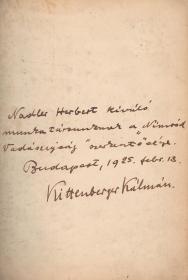 Nadler Herbert kiváló
munkatársunknak a "Nimród
Vadászujság" szerkesztősége.
Budapest, 1925. febr. 13.
Kittenberger Kálmán.